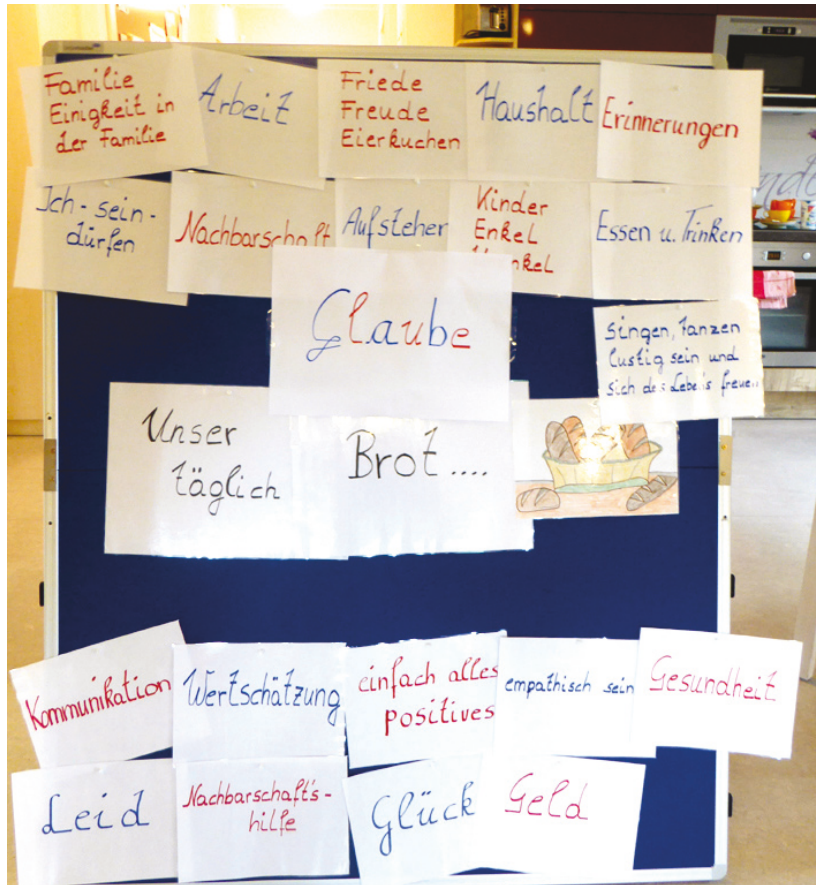 Familie
Einigkeit in
der Familie
Arbeit
Friede
Freude
Eierkuchen
Haushalt
Erinnerungen
Ich-sein-
dürfen
Nachbarschaft
Aufsteher
Kinder
Enkel
Essen u. Trinken
Glaube
singen, tanzen
lustig sein und
sich des Lebens
Unser
täglich
Brot....
Kommunikation
Wertschätzung
einfach alles
positives
empathisch sein
Gesundheit
Leid
Nachbarschaft's-
hilfe
Glück
Geld